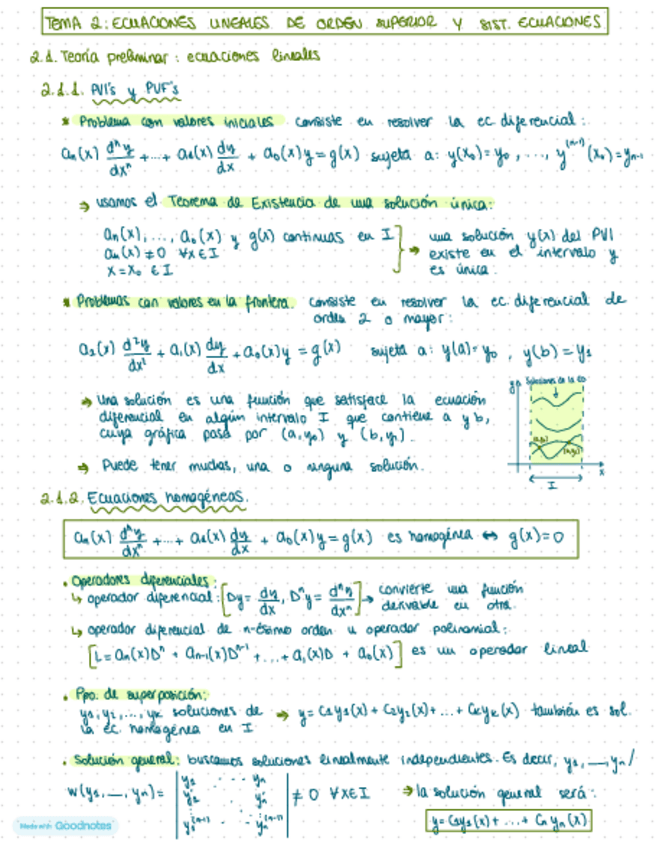 TEMA 2: ECUACIONES LINEALES DE ORDEN SUPERIOR Y SIST. ECUACIONES
2.1. Teoría preliminar: ecuaciones lineales
2.1.1. PVI's y PVF's
* Problema con valores iniciales consiste en resolver la ec. diferencial:
aₙ(x) dⁿy/dxⁿ + ... + a₁(x) dy/dx + a₀(x)y = g(x) sujeta a: y(x₀) = y₀, ..., y⁽ⁿ⁻¹⁾(x₀) = yₙ₋₁
→ usamos el Teorema de Existencia de una solución única:
aₙ(x), ..., a₀(x) y g(x) continuas en I
aₙ(x) ≠ 0 ∀x∈I
x = x₀ ∈ I
→ una solución y(x) del PVI
existe en el intervalo y
es única.
* Problemas con valores en la frontera. consiste en resolver la ec. diferencial de
orden 2 o mayor:
a₂(x) d²y/dx² + a₁(x) dy/dx + a₀(x)y = g(x) sujeta a: y(a) = y₀, y(b) = y₁
→ Una solución es una función que satisface la ecuación
diferencial en algún intervalo I que contiene a y b,
cuya gráfica pasa por (a, y₀) y (b, y₁).
→ Puede tener muchas, una o ninguna solución.
y
Soluciones de la ED
(a,y₀)
(b,y₁)
x
I
2.1.2. Ecuaciones homogéneas.
aₙ(x) dⁿy/dxⁿ + ... + a₁(x) dy/dx + a₀(x)y = g(x) es homogénea ↔ g(x) = 0
. Operadores diferenciales:
↳ operador diferencial: [Dy = dy/dx, Dⁿy = dⁿy/dxⁿ] → convierte una función
derivable en otra.
↳ operador diferencial de n-ésimo orden u operador polinomial:
[L = aₙ(x)Dⁿ + aₙ₋₁(x)Dⁿ⁻¹ + ... + a₁(x)D + a₀(x)] es un operador lineal
. Ppo. de superposición:
y₁, y₂, ..., yₖ soluciones de → y = c₁y₁(x) + c₂y₂(x) + ... + cₖyₖ(x) también es sol.
la ec. homogénea en I
. Solución general: buscamos soluciones linealmente independientes. Es decir, y₁, __, yₙ /
W(y₁, __, yₙ) = | y₁ ... yₙ
y₁' ... yₙ'
y₁⁽ⁿ⁻¹⁾ yₙ⁽ⁿ⁻¹⁾ | ≠ 0 ∀x∈I → la solución general será:
y = c₁y₁(x) + ... + cₙyₙ(x)
Made with Goodnotes